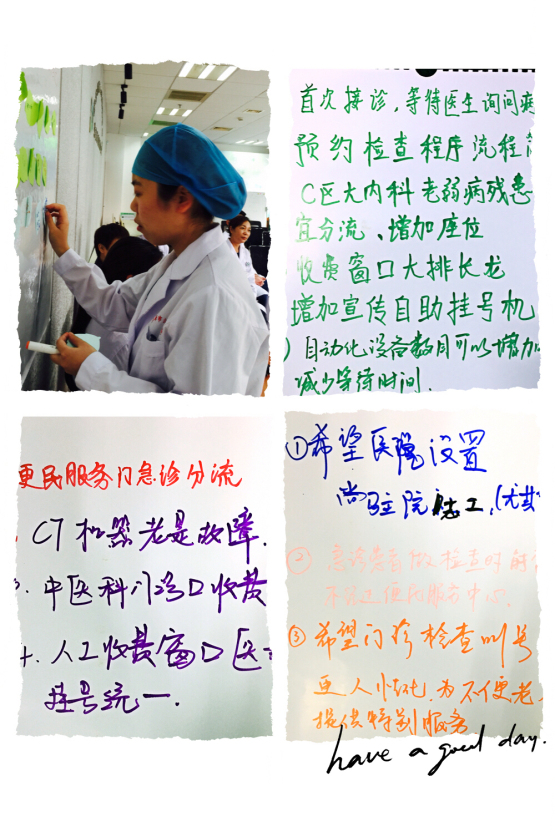 首次接诊,等待医生询问病
预约检查程序流程
C区大内科老弱病残患
宜分流、增加座位
收费窗口大排长龙
增加宣传自助挂号机
)自动化设备数目可以增加
减少等待时间.
便民服务门急诊分流
CT机器老是故障.
中医科门诊口收费
人工收费窗口医
挂号统一.
①希望医院设置
驻院 工.(尤其
② 急诊患者做检查时
便民服务中心.
③希望门诊检查叫号
更人性化.为不便老
提供特别服务
have a good day.